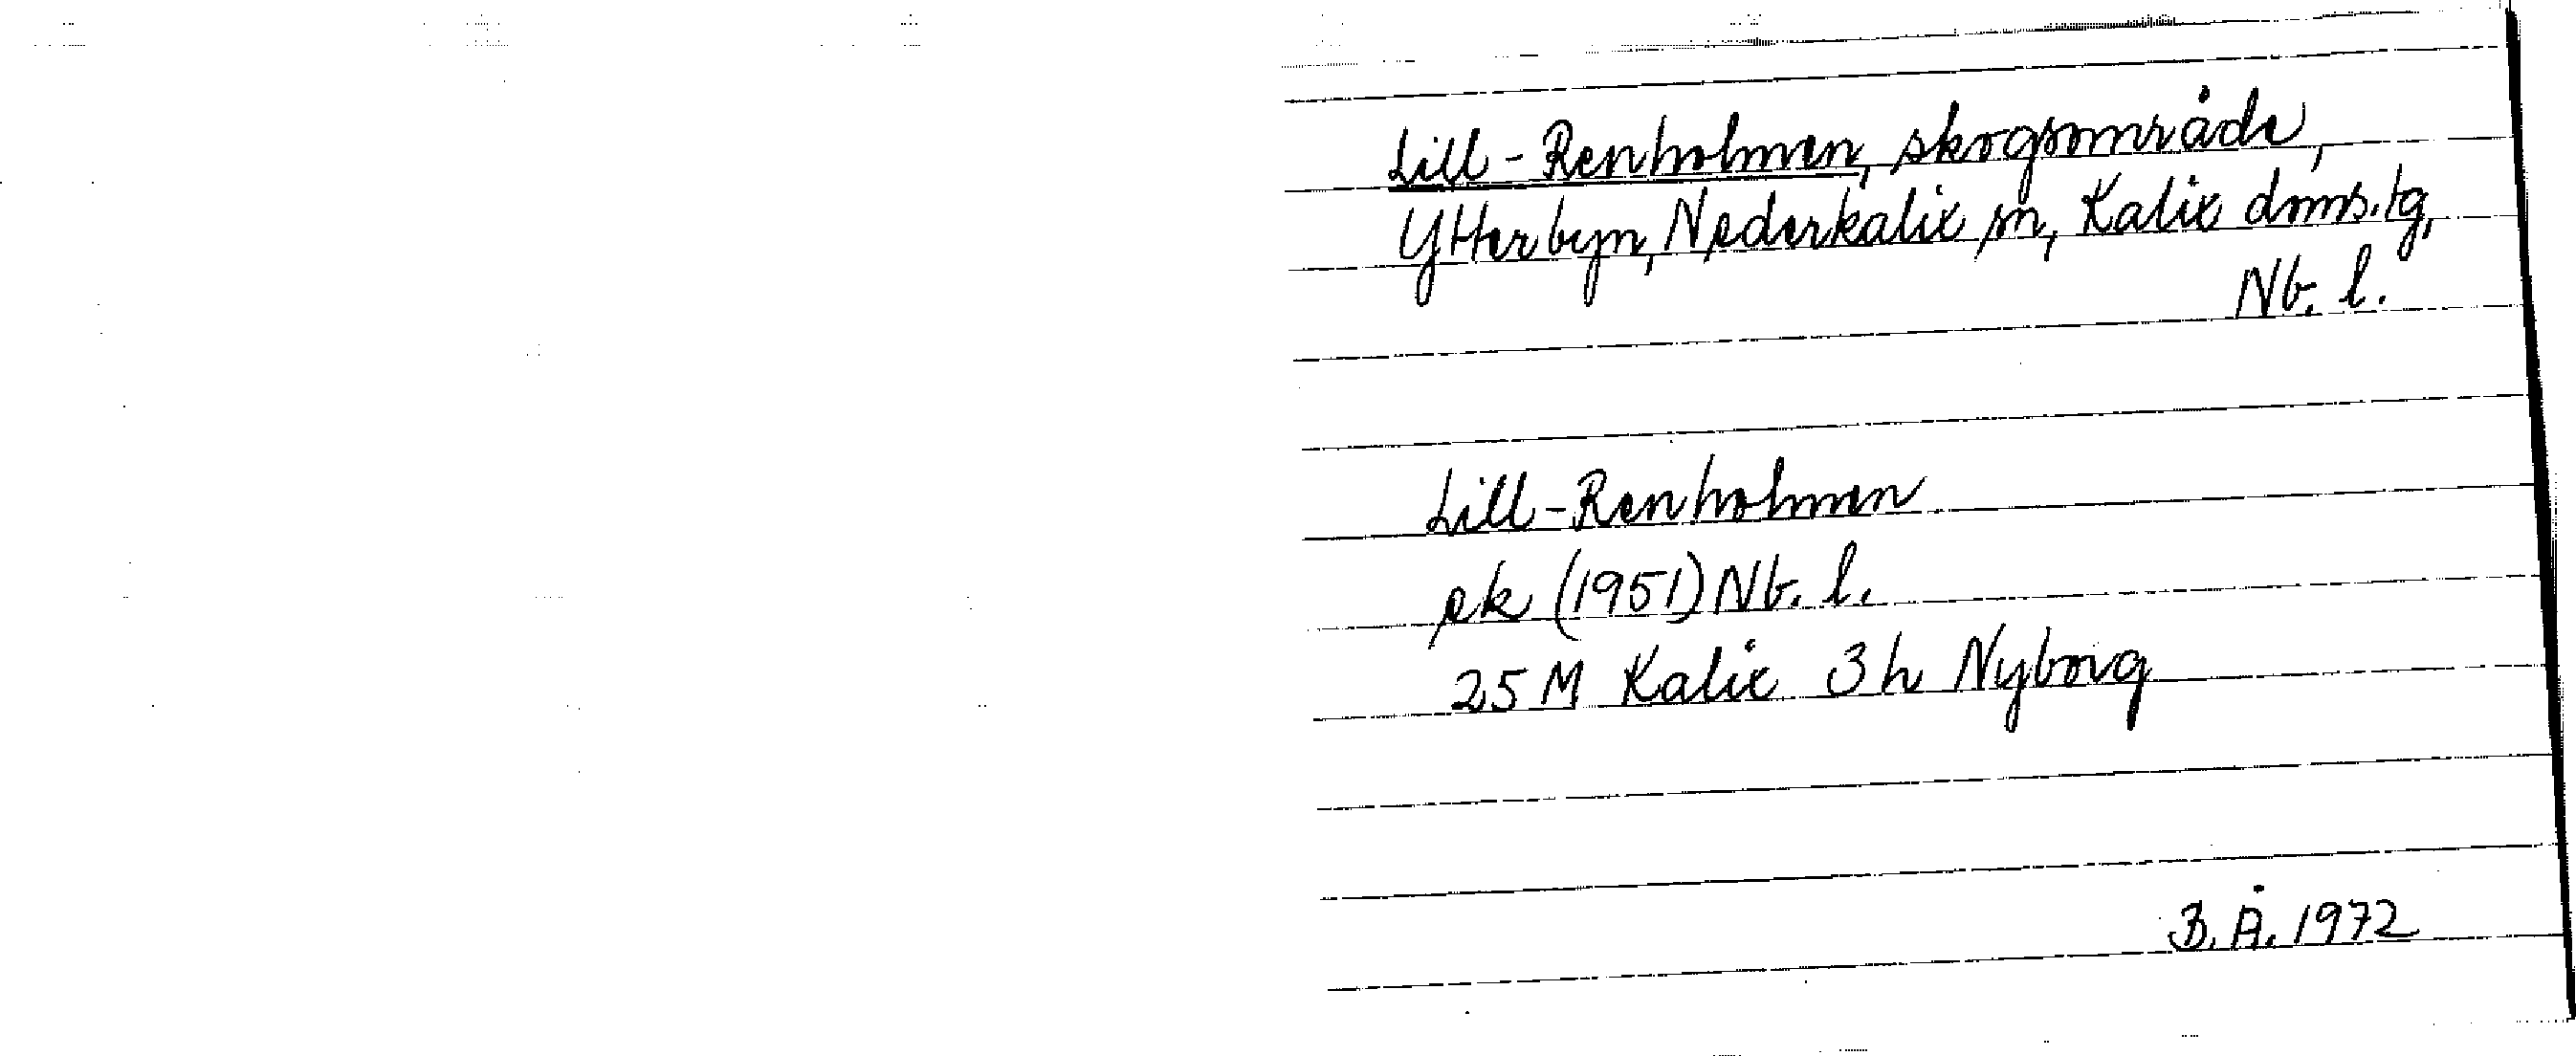 Lill-Renholmen, skogsområde,
Ytterbyn, Nederkalix sn, Kalix doms.tg,
Nb. l.
Lill-Renholmen
ek (1951) Nb. l.
25 M Kalix 3h Nyborg
B.Å. 1972